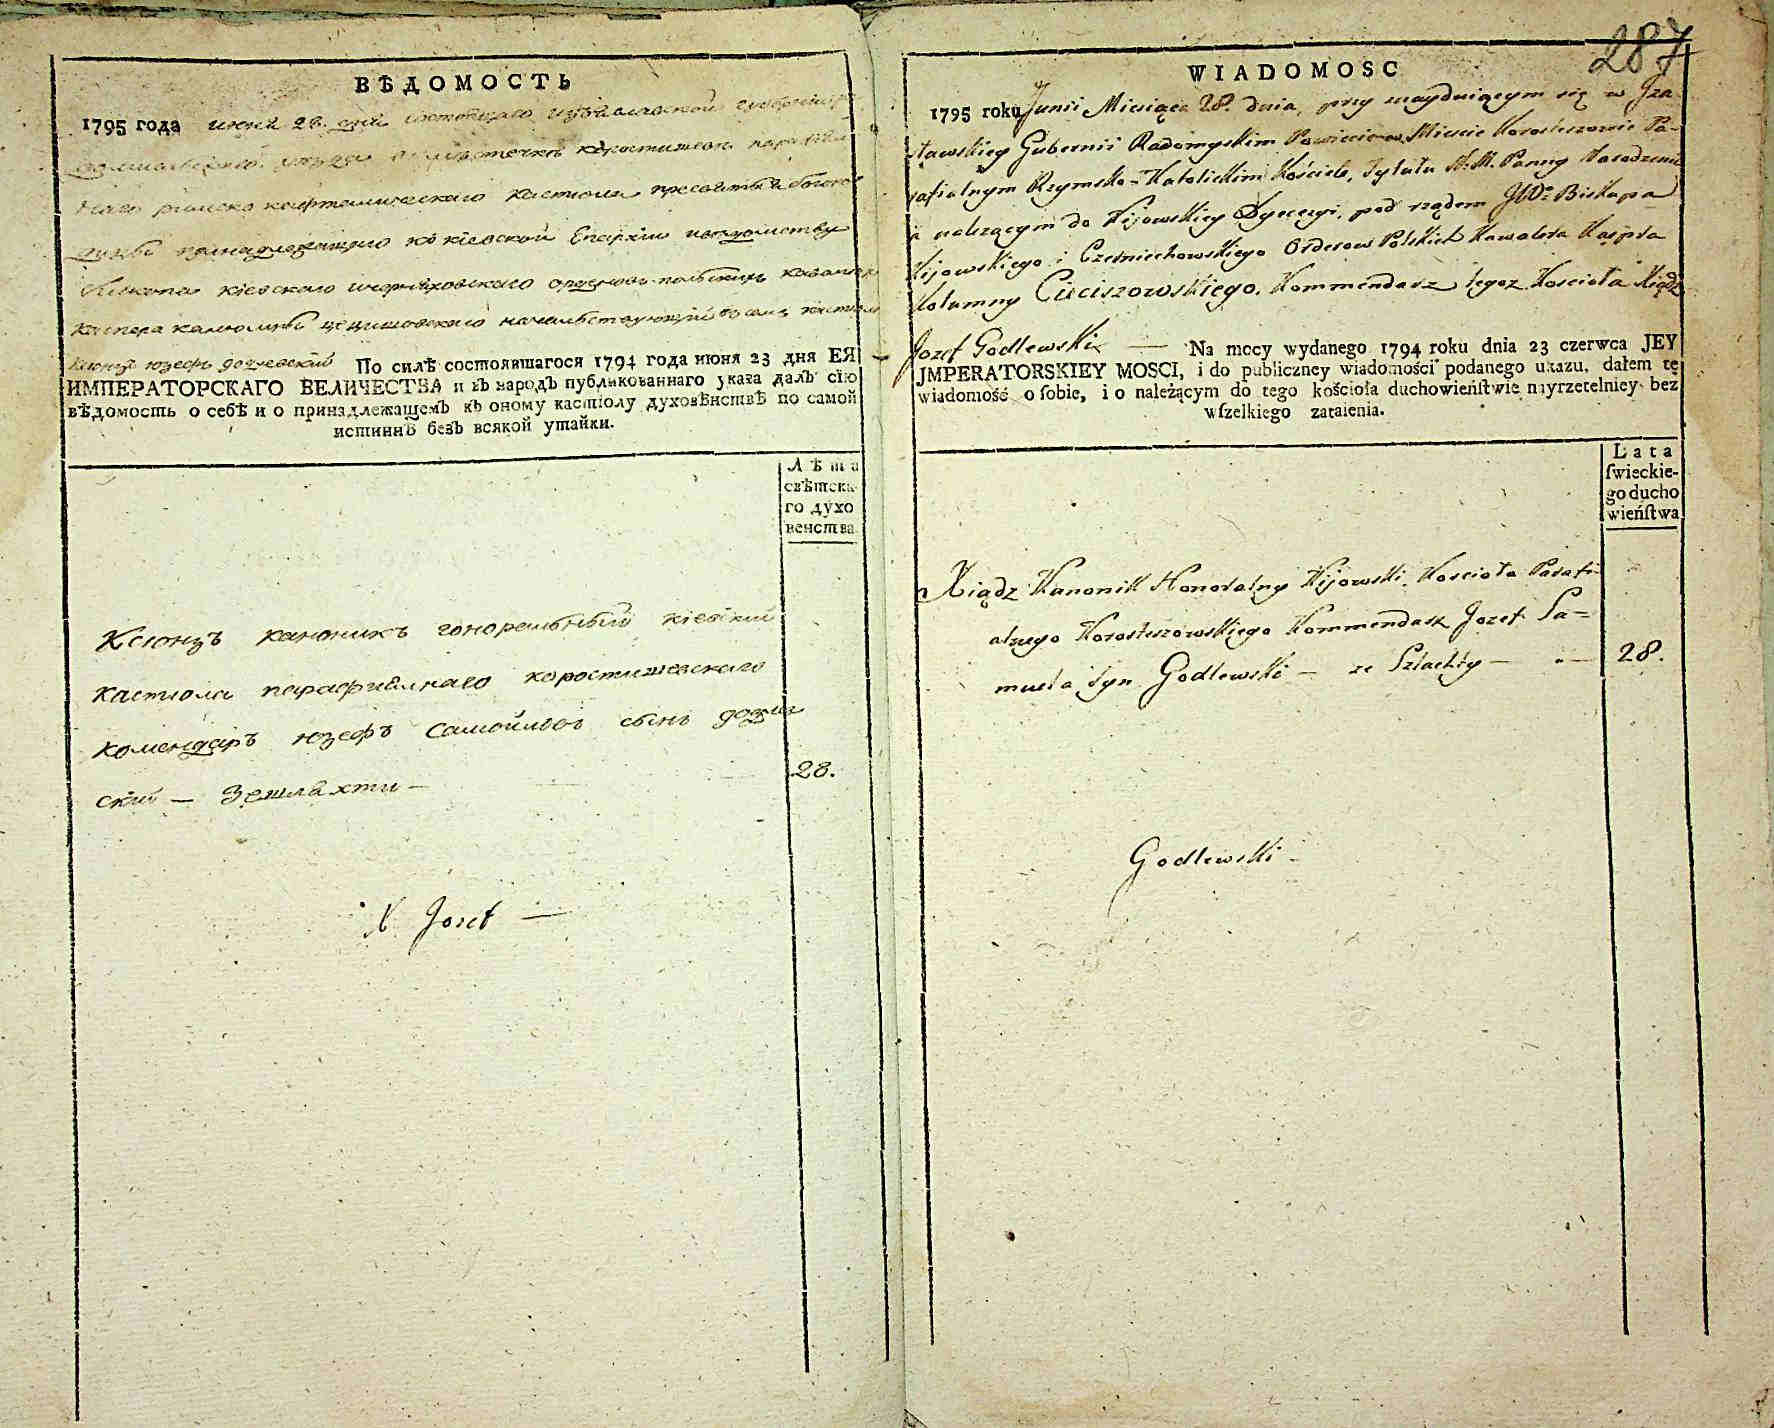 ВѢДОМОСТЬ
1795 года июня 28. дня состоящаго изъяславской губернiи
уезда местечкѣ коростишевѣ парафiал
наго римско кафтолическаго кастiола пресвятыя богоро
принадлежащаго къ кiевской Епархiи
Бископа кiевскаго ичернѣховскаго ордеровъ польскихъ кавалера
каспера калюмны цецишовскаго начальствующiй
ксiонзъ юзефъ додлевскiй По силѣ состоявшагося 1794 года июня 23 дня ЕЯ
ИМПЕРАТОРСКАГО ВЕЛИЧЕСТВА и въ народъ публикованнаго указа далъ сiю
вѣдомость о себѣ и о принадлежащемъ къ оному кастiолу духовѣнствѣ по самой
истиннѣ безъ всякой утайки.
Лѣта
свѣтска
го духо
венства
Ксiонзъ каноникъ гоноральный кiевскiй
кастiола парафиялнаго коростишевскаго
комендаръ юзефъ Самойловъ сынъ додлев
скiй — Зешляхти —
28.
X. Jozef —
287
WIADOMOSC
1795 roku Junii Miesiąca 28. dnia, przy znayduiącym się w Jza
sławskiey Gubernii Radomyskim Powiecie w Miescie Korosteszowie Pa-
rafialnym Rzymsko-Katolickim Kościele, Tytułu N. M. Panny Narodzenia
a należącym do Kijowskiey Dyecezyi, pod rządem JWo Biskupa
Kijowskiego i Czerniechowskiego Orderow Polskich Kawalera Kaspra
Kolumny Cieciszowskiego, Kommendarz tegoz Kościoła Xiądz
Jozef Godlewski — Na mocy wydanego 1794 roku dnia 23 czerwca JEY
JMPERATORSKIEY MOSCI, i do publiczney wiadomości podanego ukazu, dałem tę
wiadomość o ſobie, i o należącym do tego kościoła duchowieńſtwie nayrzetelniey bez
wſzelkiego zataienia.
Lata
ſwieckie-
go ducho
wieńſtwa
Xiądz Kanonik Honoralny Kijowski, Kościoła Parafi-
alnego Korosteszowskiego Kommendarz Jozef Sa-
muela syn Godlewski — ze Szlachty —
28.
Godlewski —